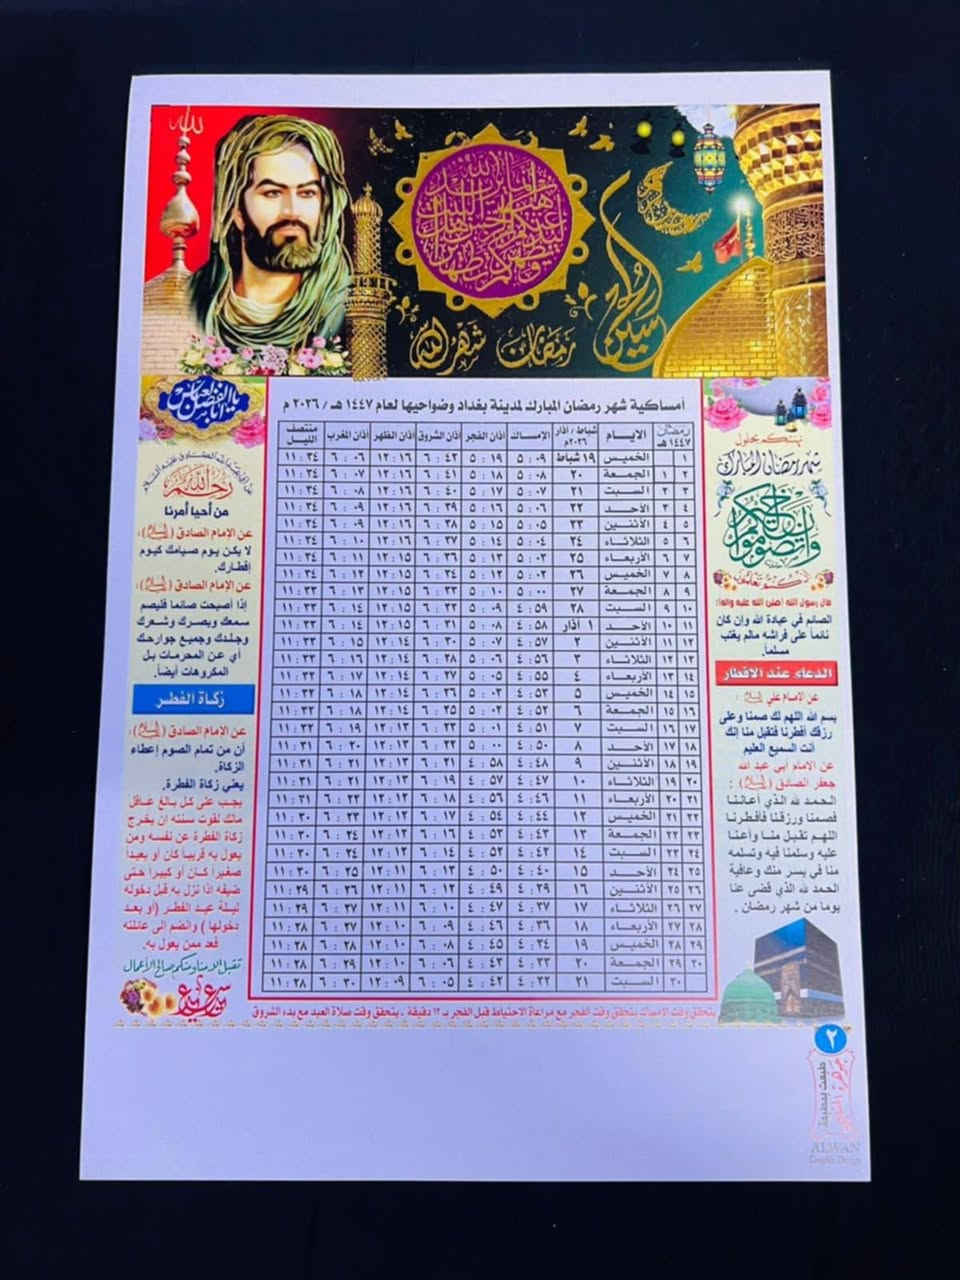 الحسين
رمضان شهر الله
يا أبا الفضل العباس
رحم الله
من أحيا أمرنا
عن الإمام الصادق (عليه السلام) :
لا يكن يوم صيامك كيوم
إفطارك.
عن الإمام الصادق (عليه السلام) :
إذا أصبحت صائما فليصم
سمعك وبصرك وشعرك
وجلدك وجميع جوارحك
أي عن المحرمات بل
المكروهات أيضاً.
زكاة الفطر
عن الإمام الصادق (عليه السلام) :
أن من تمام الصوم إعطاء
الزكاة.
يعني زكاة الفطرة.
يجب على كل بالغ عاقل
مالك لقوت سنته ان يخرج
زكاة الفطرة عن نفسه ومن
يعول به قريباً كان أو بعيداً
صغيراً كان أو كبيرا حتى
ضيفه اذا نزل به قبل دخوله
ليلة عيد الفطر (أو بعد
دخولها) وانضم الى عائلته
فعد ممن يعول به.
تقبل الله منا ومنكم صالح الأعمال
عيد سعيد
أمساكية شهر رمضان المبارك لمدينة بغداد وضواحيها لعام ١٤٤٧ هـ / ٢٠٢٦ م
رمضان ١٤٤٧ هـ الايــام شباط / اذار ٢٠٢٦م الإمساك أذان الفجر أذان الشروق أذان الظهر أذان المغرب منتصف الليل
١ الخميس ١٩ شباط ٥:٠٩ ٥:١٩ ٦:٤٢ ١٢:١٦ ٦:٠٦ ١١:٣٤
٢ ١ الجمعة ٢٠ ٥:٠٨ ٥:١٨ ٦:٤١ ١٢:١٦ ٦:٠٧ ١١:٣٤
٣ ٢ السبت ٢١ ٥:٠٧ ٥:١٧ ٦:٤٠ ١٢:١٦ ٦:٠٨ ١١:٣٤
٤ ٣ الأحد ٢٢ ٥:٠٦ ٥:١٦ ٦:٣٩ ١٢:١٦ ٦:٠٩ ١١:٣٤
٥ ٤ الأثنين ٢٣ ٥:٠٥ ٥:١٥ ٦:٣٨ ١٢:١٦ ٦:٠٩ ١١:٣٤
٦ ٥ الثلاثاء ٢٤ ٥:٠٤ ٥:١٤ ٦:٣٧ ١٢:١٦ ٦:١٠ ١١:٣٤
٧ ٦ الأربعاء ٢٥ ٥:٠٣ ٥:١٣ ٦:٣٦ ١٢:١٥ ٦:١١ ١١:٣٤
٨ ٧ الخميس ٢٦ ٥:٠٢ ٥:١٢ ٦:٣٤ ١٢:١٥ ٦:١٢ ١١:٣٤
٩ ٨ الجمعة ٢٧ ٥:٠٠ ٥:١٠ ٦:٣٣ ١٢:١٥ ٦:١٣ ١١:٣٣
١٠ ٩ السبت ٢٨ ٤:٥٩ ٥:٠٩ ٦:٣٢ ١٢:١٥ ٦:١٤ ١١:٣٣
١١ ١٠ الأحد ١ أذار ٤:٥٨ ٥:٠٨ ٦:٣١ ١٢:١٥ ٦:١٤ ١١:٣٣
١٢ ١١ الأثنين ٢ ٤:٥٧ ٥:٠٧ ٦:٣٠ ١٢:١٤ ٦:١٥ ١١:٣٣
١٣ ١٢ الثلاثاء ٣ ٤:٥٦ ٥:٠٦ ٦:٢٨ ١٢:١٤ ٦:١٦ ١١:٣٣
١٤ ١٣ الأربعاء ٤ ٤:٥٥ ٥:٠٥ ٦:٢٧ ١٢:١٤ ٦:١٧ ١١:٣٢
١٥ ١٤ الخميس ٥ ٤:٥٣ ٥:٠٣ ٦:٢٦ ١٢:١٤ ٦:١٨ ١١:٣٢
١٦ ١٥ الجمعة ٦ ٤:٥٢ ٥:٠٢ ٦:٢٥ ١٢:١٤ ٦:١٨ ١١:٣٢
١٧ ١٦ السبت ٧ ٤:٥١ ٥:٠١ ٦:٢٣ ١٢:١٣ ٦:١٩ ١١:٣٢
١٨ ١٧ الأحد ٨ ٤:٥٠ ٥:٠٠ ٦:٢٢ ١٢:١٣ ٦:٢٠ ١١:٣١
١٩ ١٨ الأثنين ٩ ٤:٤٨ ٤:٥٨ ٦:٢١ ١٢:١٣ ٦:٢١ ١١:٣١
٢٠ ١٩ الثلاثاء ١٠ ٤:٤٧ ٤:٥٧ ٦:١٩ ١٢:١٣ ٦:٢١ ١١:٣١
٢١ ٢٠ الأربعاء ١١ ٤:٤٦ ٤:٥٦ ٦:١٨ ١٢:١٢ ٦:٢٢ ١١:٣١
٢٢ ٢١ الخميس ١٢ ٤:٤٤ ٤:٥٤ ٦:١٧ ١٢:١٢ ٦:٢٣ ١١:٣٠
٢٣ ٢٢ الجمعة ١٣ ٤:٤٣ ٤:٥٣ ٦:١٦ ١٢:١٢ ٦:٢٤ ١١:٣٠
٢٤ ٢٣ السبت ١٤ ٤:٤٢ ٤:٥٢ ٦:١٤ ١٢:١٢ ٦:٢٤ ١١:٣٠
٢٥ ٢٤ الأحد ١٥ ٤:٤٠ ٤:٥٠ ٦:١٣ ١٢:١١ ٦:٢٥ ١١:٣٠
٢٦ ٢٥ الأثنين ١٦ ٤:٣٩ ٤:٤٩ ٦:١٢ ١٢:١١ ٦:٢٦ ١١:٢٩
٢٧ ٢٦ الثلاثاء ١٧ ٤:٣٧ ٤:٤٧ ٦:١٠ ١٢:١١ ٦:٢٧ ١١:٢٩
٢٨ ٢٧ الأربعاء ١٨ ٤:٣٦ ٤:٤٦ ٦:٠٩ ١٢:١٠ ٦:٢٧ ١١:٢٨
٢٩ ٢٨ الخميس ١٩ ٤:٣٤ ٤:٤٥ ٦:٠٨ ١٢:١٠ ٦:٢٨ ١١:٢٨
٣٠ ٢٩ الجمعة ٢٠ ٤:٣٣ ٤:٤٣ ٦:٠٦ ١٢:١٠ ٦:٢٩ ١١:٢٨
٣٠ السبت ٢١ ٤:٣٢ ٤:٤٢ ٦:٠٥ ١٢:٠٩ ٦:٣٠ ١١:٢٨
يتحقق وقت الامساك بتحقق وقت الفجر مع مراعاة الاحتياط قبل الفجر ب ١٢ دقيقة ، يتحقق وقت صلاة العيد مع بدء الشروق
نهنئكم بحلول
شهر رمضان المبارك
وأن تصوموا خير لكم
إن كنتم تعلمون
قال رسول الله (صلى الله عليه وآله):
الصائم في عبادة الله وإن كان
نائماً على فراشه مالم يغتب
مسلماً.
الدعاء عند الافطار
عن الإمام علي (عليه السلام) :
بسم الله اللهم لك صمنا وعلى
رزقك أفطرنا فتقبل منا إنك
أنت السميع العليم
عن الامام ابي عبد الله
جعفر الصادق (عليه السلام) :
الحمد لله الذي أعاننا
فصمنا ورزقنا فأفطرنا
اللهم تقبل منا وأعنا
عليه وسلمنا فيه وتسلمه
منا في يسر منك وعافية
الحمد لله الذي قضى عنا
يوما من شهر رمضان .
٢
طبعت بمطبعة
ALWAN
Graphic Design